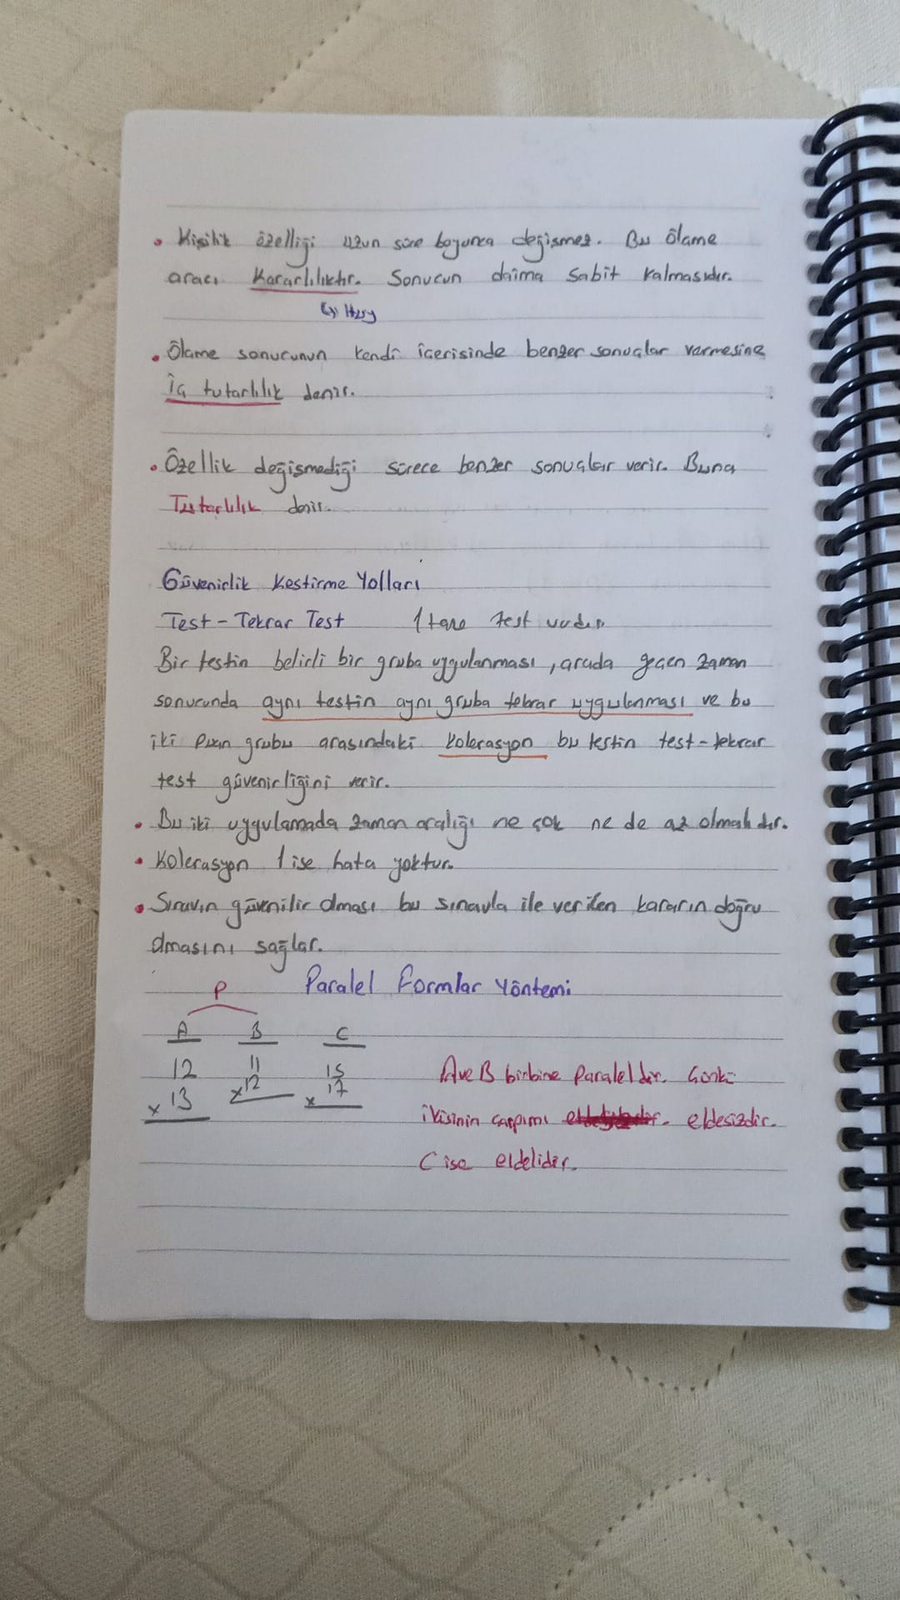 • Kişilik özelliği uzun süre boyunca değişmez. Bu ölçme
aracı Kararlılıktır. Sonucun daima sabit kalmasıdır.
↳ Huy
• Ölçme sonucunun kendi içerisinde benzer sonuçlar vermesine
İç tutarlılık denir.
• Özellik değişmediği sürece benzer sonuçlar verir. Buna
Tutarlılık denir.
Güvenirlik Kestirme Yolları
Test - Tekrar Test 1 tane test vardır.
Bir testin belirli bir gruba uygulanması, arada geçen zaman
sonucunda aynı testin aynı gruba tekrar uygulanması ve bu
iki puan grubu arasındaki kolerasyon bu testin test-tekrar
test güvenirliğini verir.
• Bu iki uygulamada zaman aralığı ne çok ne de az olmalıdır.
• Kolerasyon 1 ise hata yoktur.
• Sınavın güvenilir olması bu sınavla ile verilen kararın doğru
olmasını sağlar.
P Paralel Formlar Yöntemi
A B C
12 11 15
x 13 x 12 x 17
A ve B birbine paraleldir. Çünkü
ikisinin çarpımı eldesizdir.
C ise eldelidir.